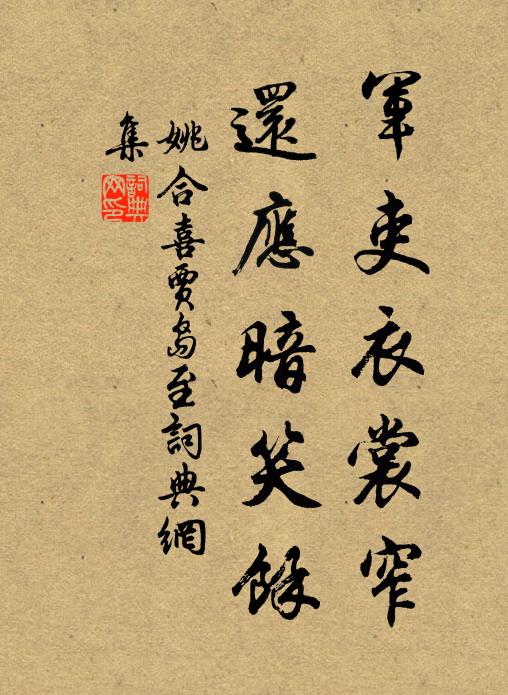 軍吏衣裳窄
還應暗笑餘
姚合喜賈島至詞典網
集
詞典
网印